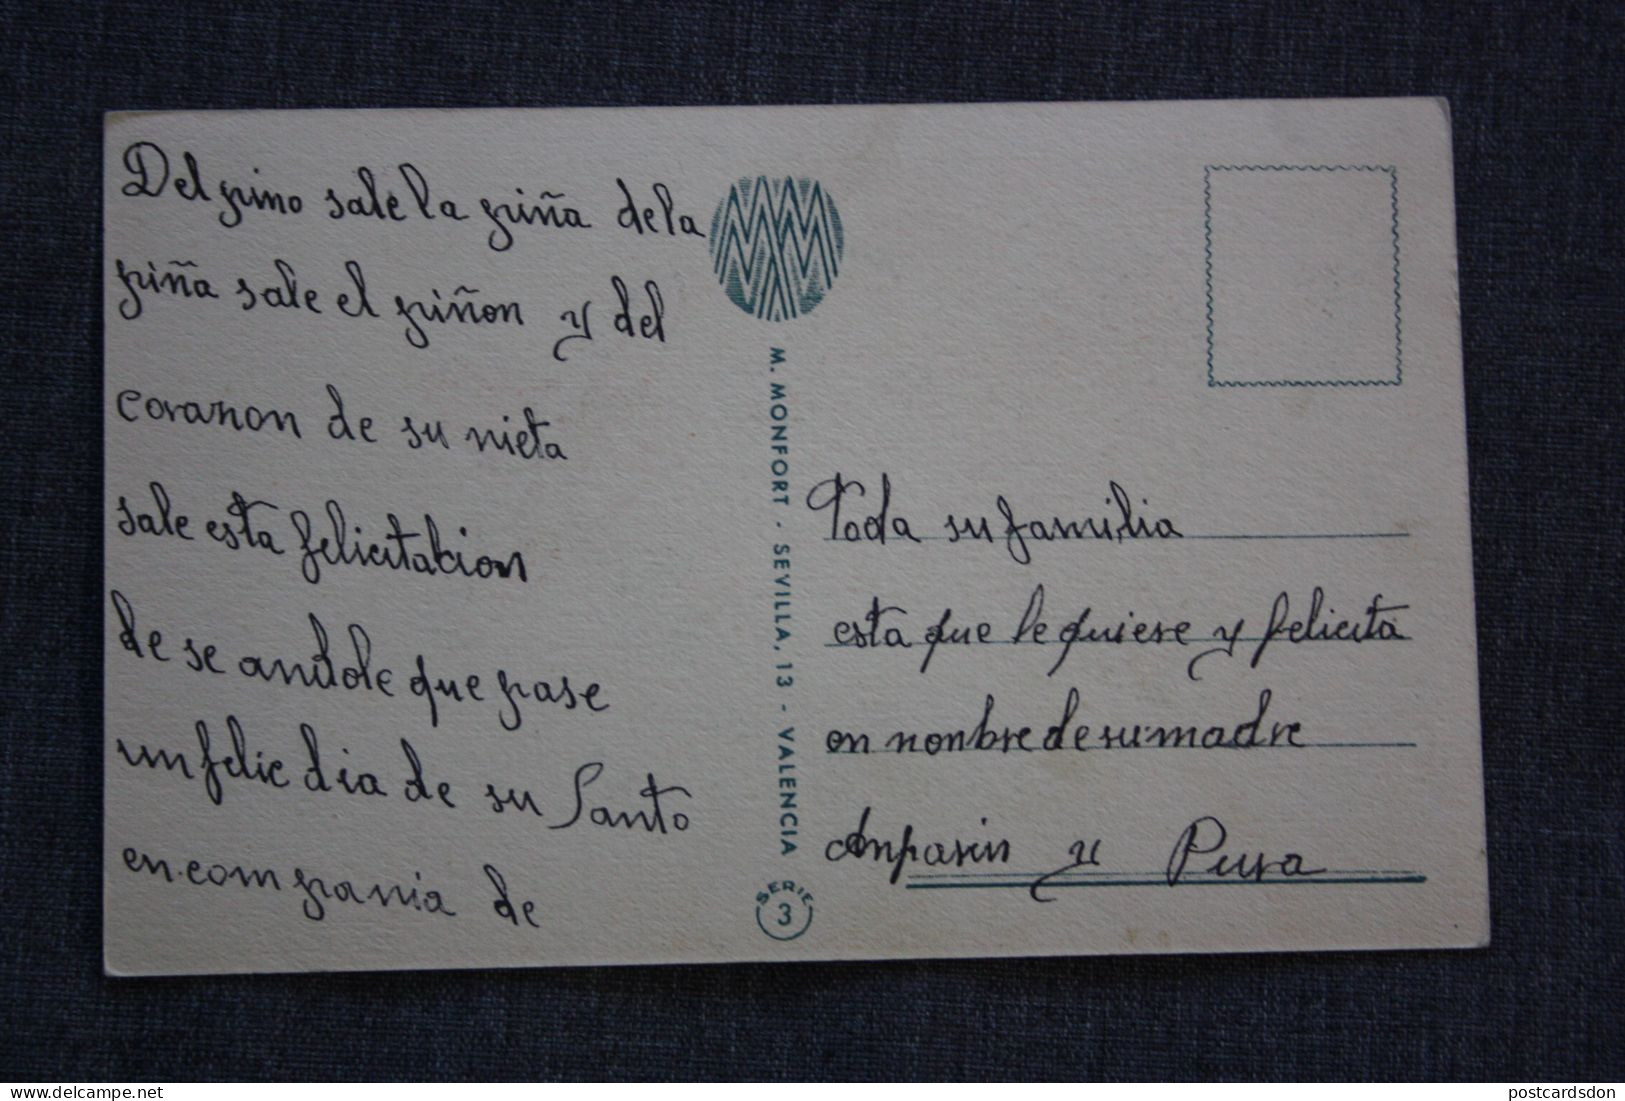 Del pino sale la piña dela
piña sale el piñon y del
corazon de su nieta
sale esta felicitacion
de se andole que pase
un felic dia de su Santo
en compania de
M. MONFORT - SEVILLA, 13 - VALENCIA
SERIE
3
Toda su familia
esta que le quiere y felicita
en nonbre de su madre
Anparin y Pura
postcardsdon